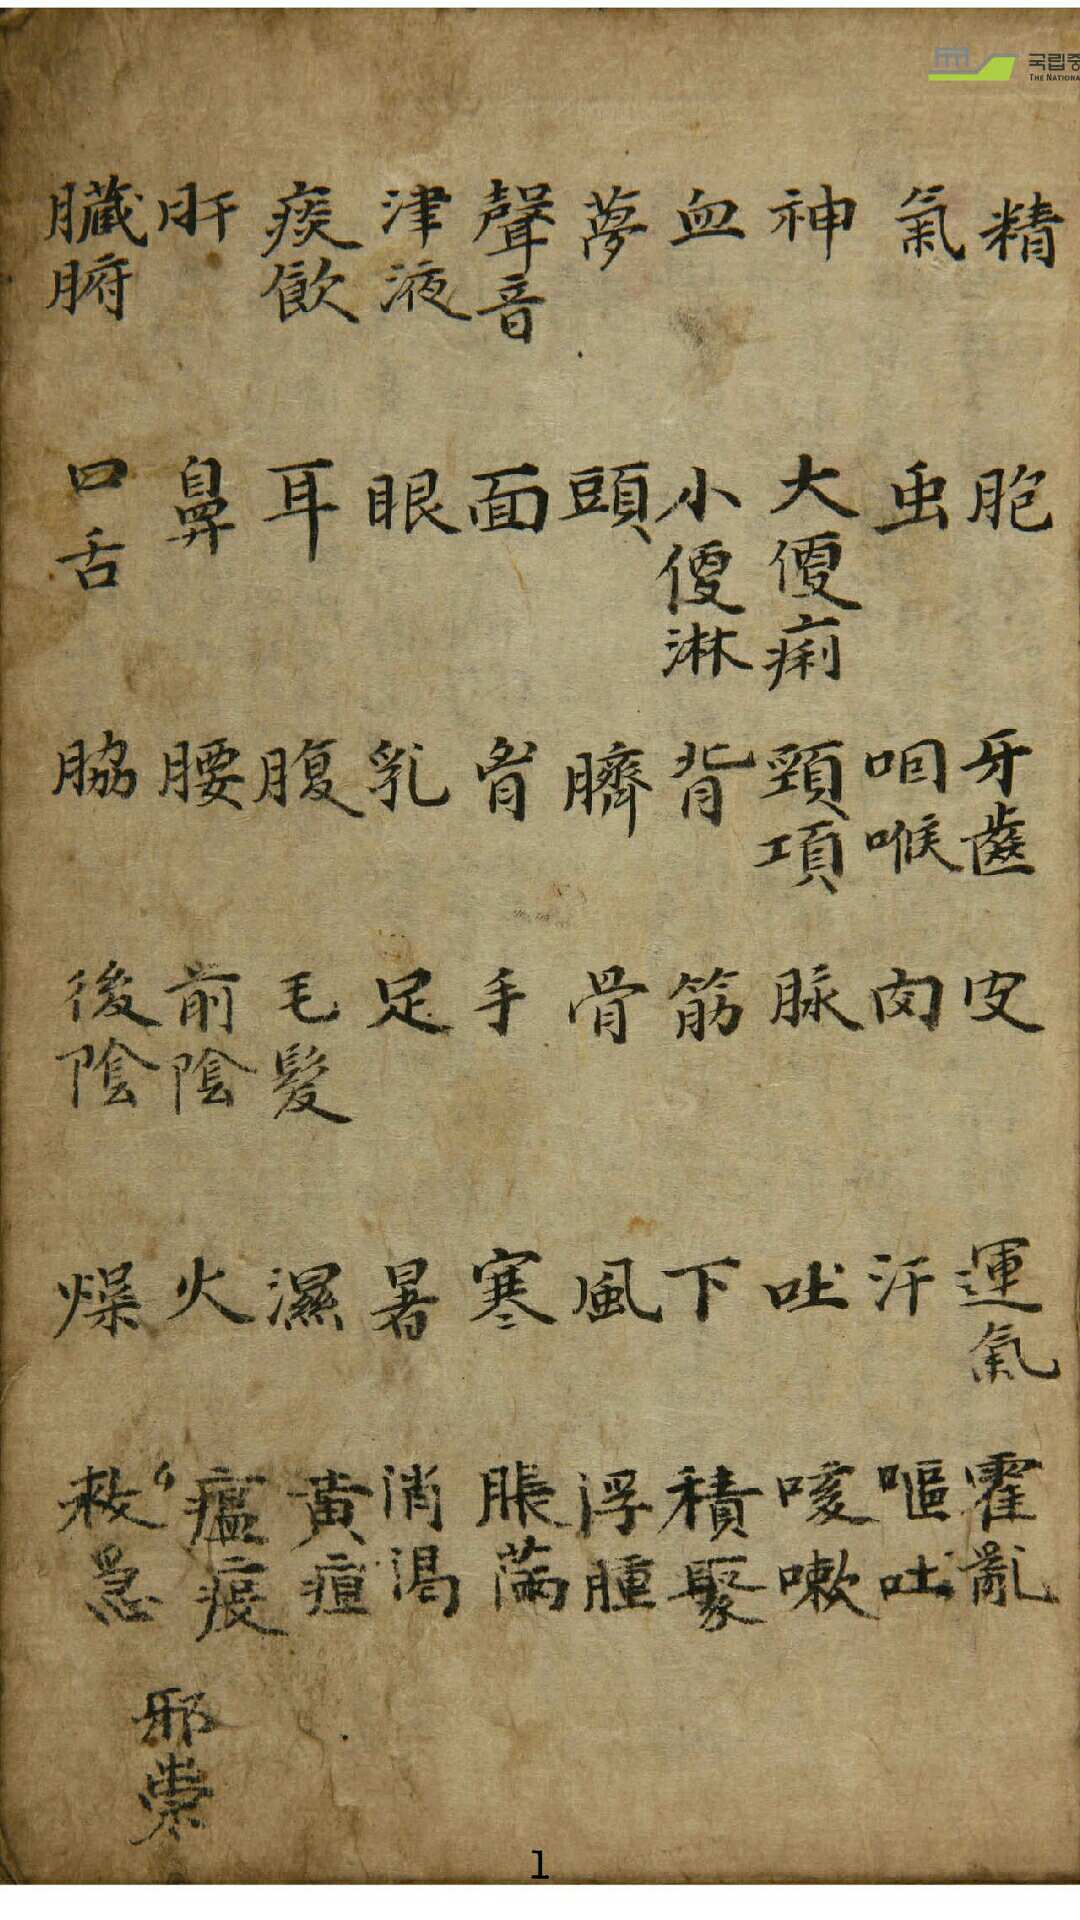 국립중
THE NATIONA
精 氣 神 血 夢 聲音 津液 痰飮 肝 臟腑
胞 虫 大便痢 小便淋 頭 面 眼 耳 鼻 口舌
牙齒 咽喉 頸項 背 臍 胷 乳 腹 腰 脇
皮 肉 脉 筋 骨 手 足 毛髮 前陰 後陰
運氣 汗 吐 下 風 寒 暑 濕 火 燥
霍亂 嘔吐 咳嗽 積聚 浮腫 脹滿 消渴 黃疸 瘟疫 救急
邪祟
1